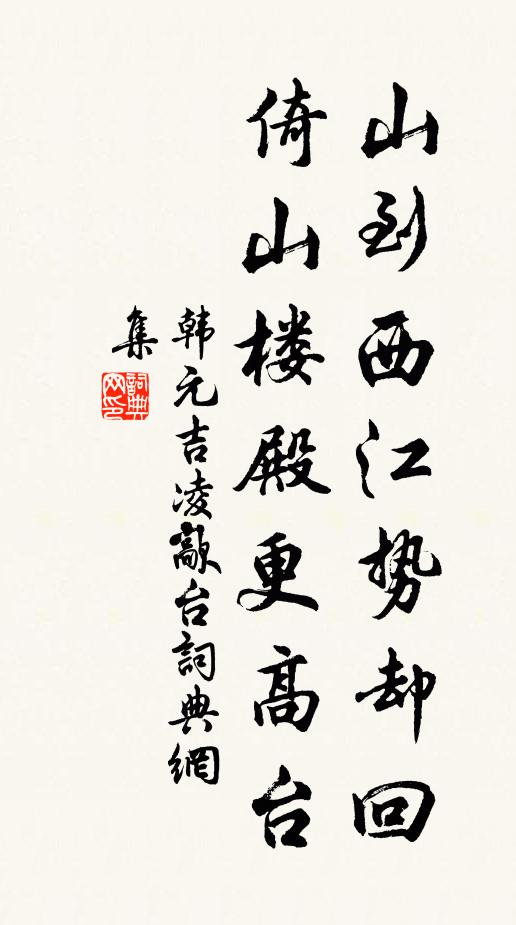 山到西江势却回
倚山楼殿更高台
韩元吉凌歊台詞典網
集
詞典网印